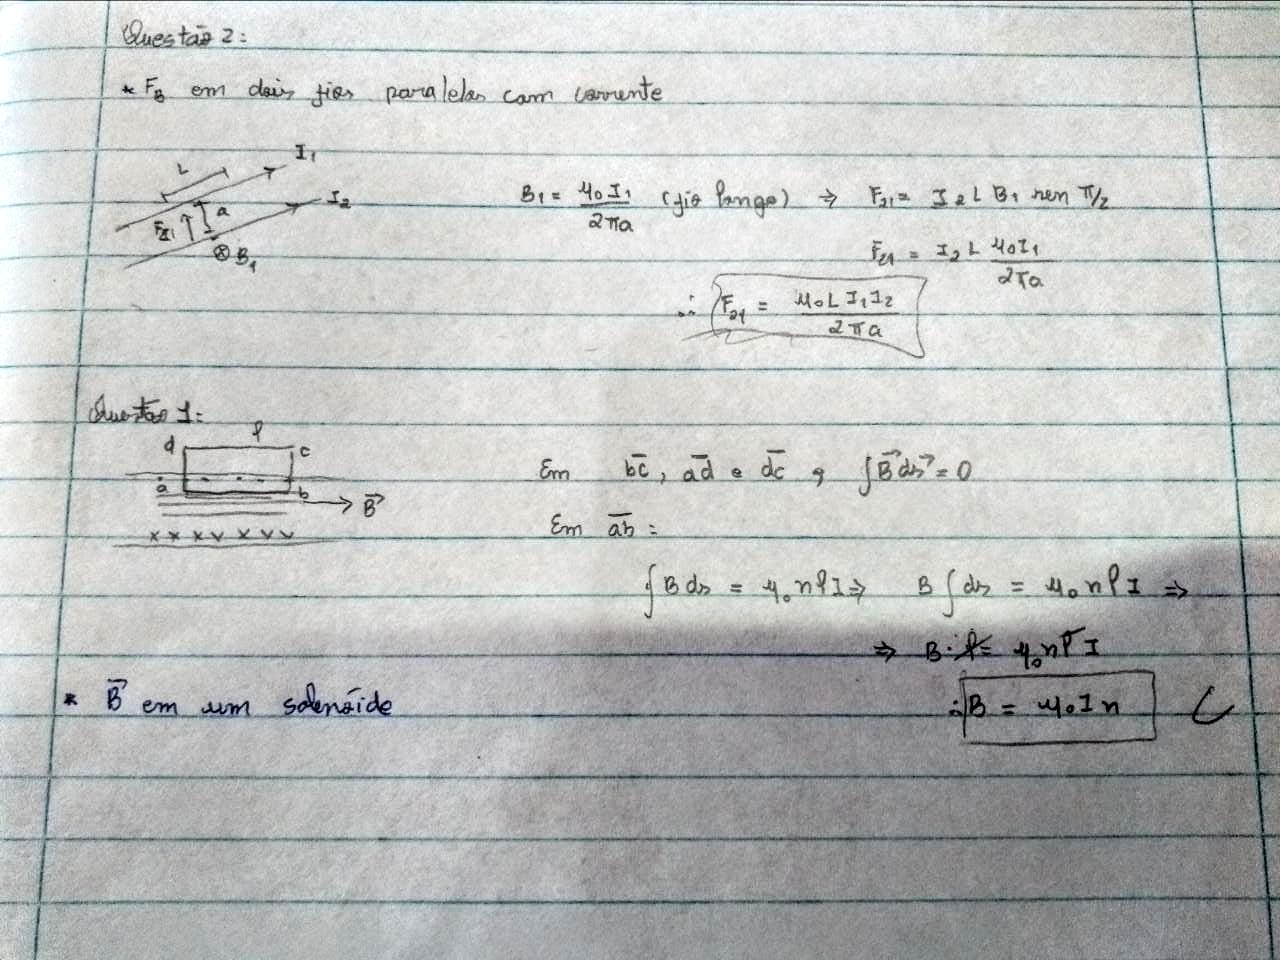 Questão 2:
* F_B em dois fios paralelos com corrente
L
I₁
I₂
a
F₂₁
⊗ B₁
B₁ = μ₀I₁/2πa (fio longo) ⇒ F₂₁ = I₂ L B₁ sen π/2
F₂₁ = I₂ L μ₀I₁/2πa
∴ F₂₁ = μ₀ L I₁I₂/2πa
Questão 1:
d l c
a b
B⃗
x x x x x x x
Em b̅c̅, a̅d̅ e d̅c̅, ∫B⃗ds⃗ = 0
Em a̅b̅:
∫B ds = μ₀nlI ⇒ B∫ds = μ₀nlI ⇒
⇒ B·l = μ₀nlI
* B⃗ em um solenóide
∴ B = μ₀In